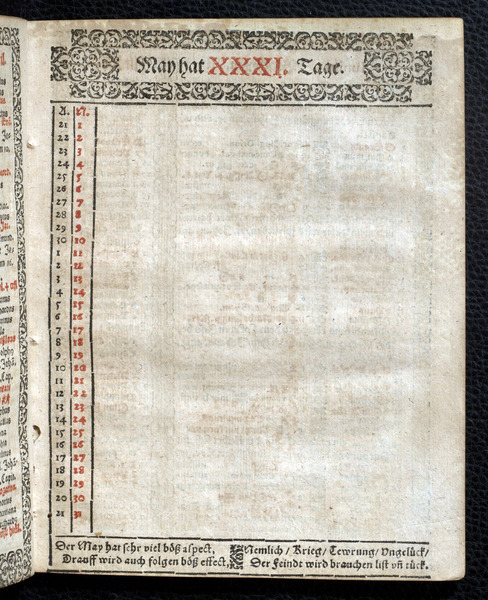 May hat XXXI. Tage.
A. N.
21 1
22 2
23 3
24 4
25 5
26 6
27 7
28 8
29 9
30 10
1 11
2 12
3 13
4 14
5 15
6 16
7 17
8 18
9 19
10 20
11 21
12 22
13 23
14 24
15 25
16 26
17 27
18 28
19 29
20 30
21 31
Der May hat sehr viel böß aspect,
Drauff wird auch folgen böß effect,
Nemlich / Krieg / Tewrung / Vngelück /
Der Feindt wird brauchen list vñ tück.